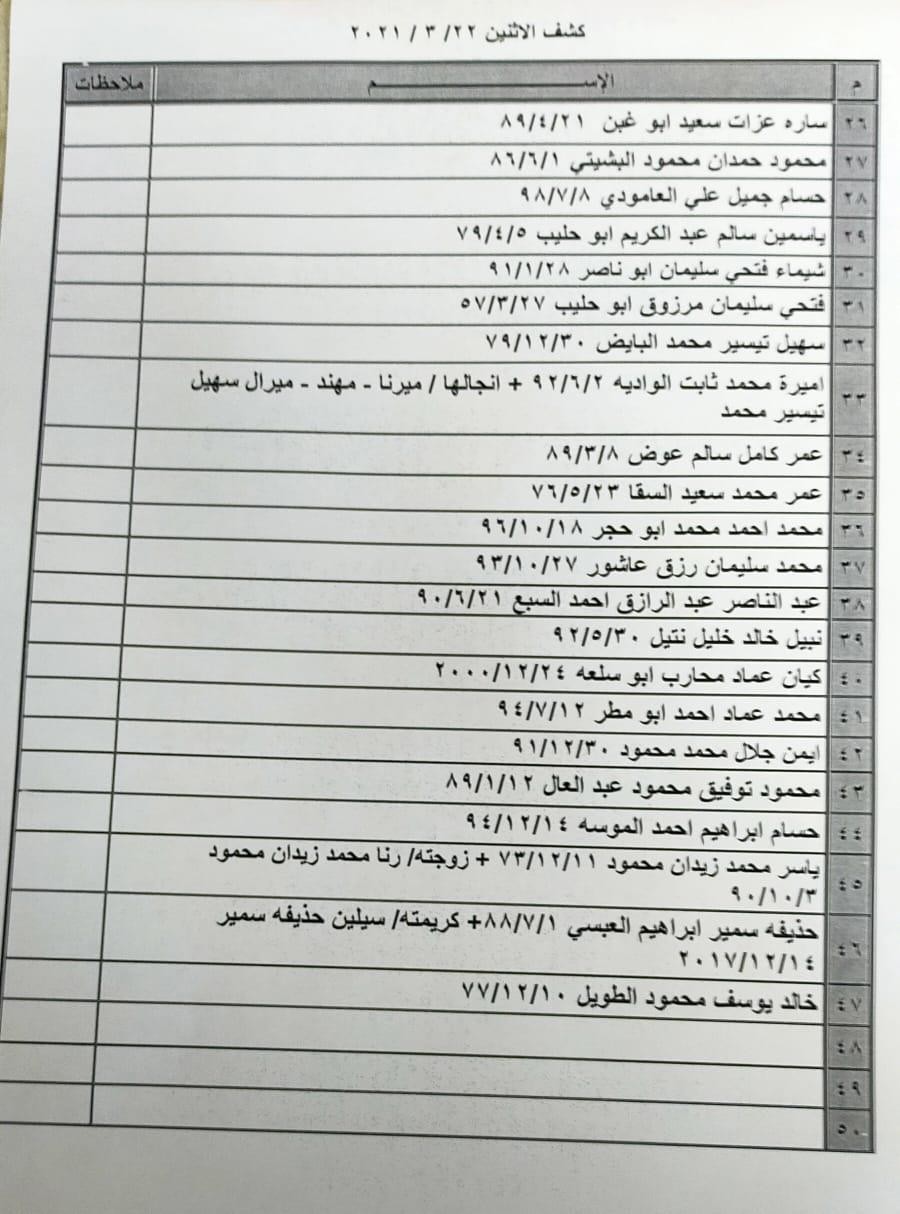 كشف الاثنين ٢٢/ ٣ / ٢٠٢١
م الإســـــــــــــــــــم ملاحظات
٢٦ ساره عزات سعيد ابو غبن ٨٩/٤/٢١
٢٧ محمود حمدان محمود البشيتي ٨٦/٦/١
٢٨ حسام جميل علي العامودي ٩٨/٧/٨
٢٩ ياسمين سالم عبد الكريم ابو حليب ٧٩/٤/٥
٣٠ شيماء فتحي سليمان ابو ناصر ٩١/١/٢٨
٣١ فتحي سليمان مرزوق ابو حليب ٥٧/٣/٢٧
٣٢ سهيل تيسير محمد البايض ٧٩/١٢/٣٠
٣٣ اميرة محمد ثابت الواديه ٩٢/٦/٢ + انجالها / ميرنا - مهند - ميرال سهيل
تيسير محمد
٣٤ عمر كامل سالم عوض ٨٩/٣/٨
٣٥ عمر محمد سعيد السقا ٧٦/٥/٢٣
٣٦ محمد احمد محمد ابو حجر ٩٦/١٠/١٨
٣٧ محمد سليمان رزق عاشور ٩٣/١٠/٢٧
٣٨ عبد الناصر عبد الرازق احمد السبع ٩٠/٦/٢١
٣٩ نبيل خالد خليل نتيل ٩٢/٥/٣٠
٤٠ كيان عماد محارب ابو سلعه ٢٠٠٠/١٢/٢٤
٤١ محمد عماد احمد ابو مطر ٩٤/٧/١٢
٤٢ ايمن جلال محمد محمود ٩١/١٢/٣٠
٤٣ محمود توفيق محمود عبد العال ٨٩/١/١٢
٤٤ حسام ابراهيم احمد الموسه ٩٤/١٢/١٤
٤٥ ياسر محمد زيدان محمود ٧٣/١٢/١١ + زوجته/ رنا محمد زيدان محمود
٩٠/١٠/٣
٤٦ حذيفه سمير ابراهيم العبسي ٨٨/٧/١+ كريمته/ سيلين حذيفه سمير
٢٠١٧/١٢/١٤
٤٧ خالد يوسف محمود الطويل ٧٧/١٢/١٠
٤٨
٤٩
٥٠